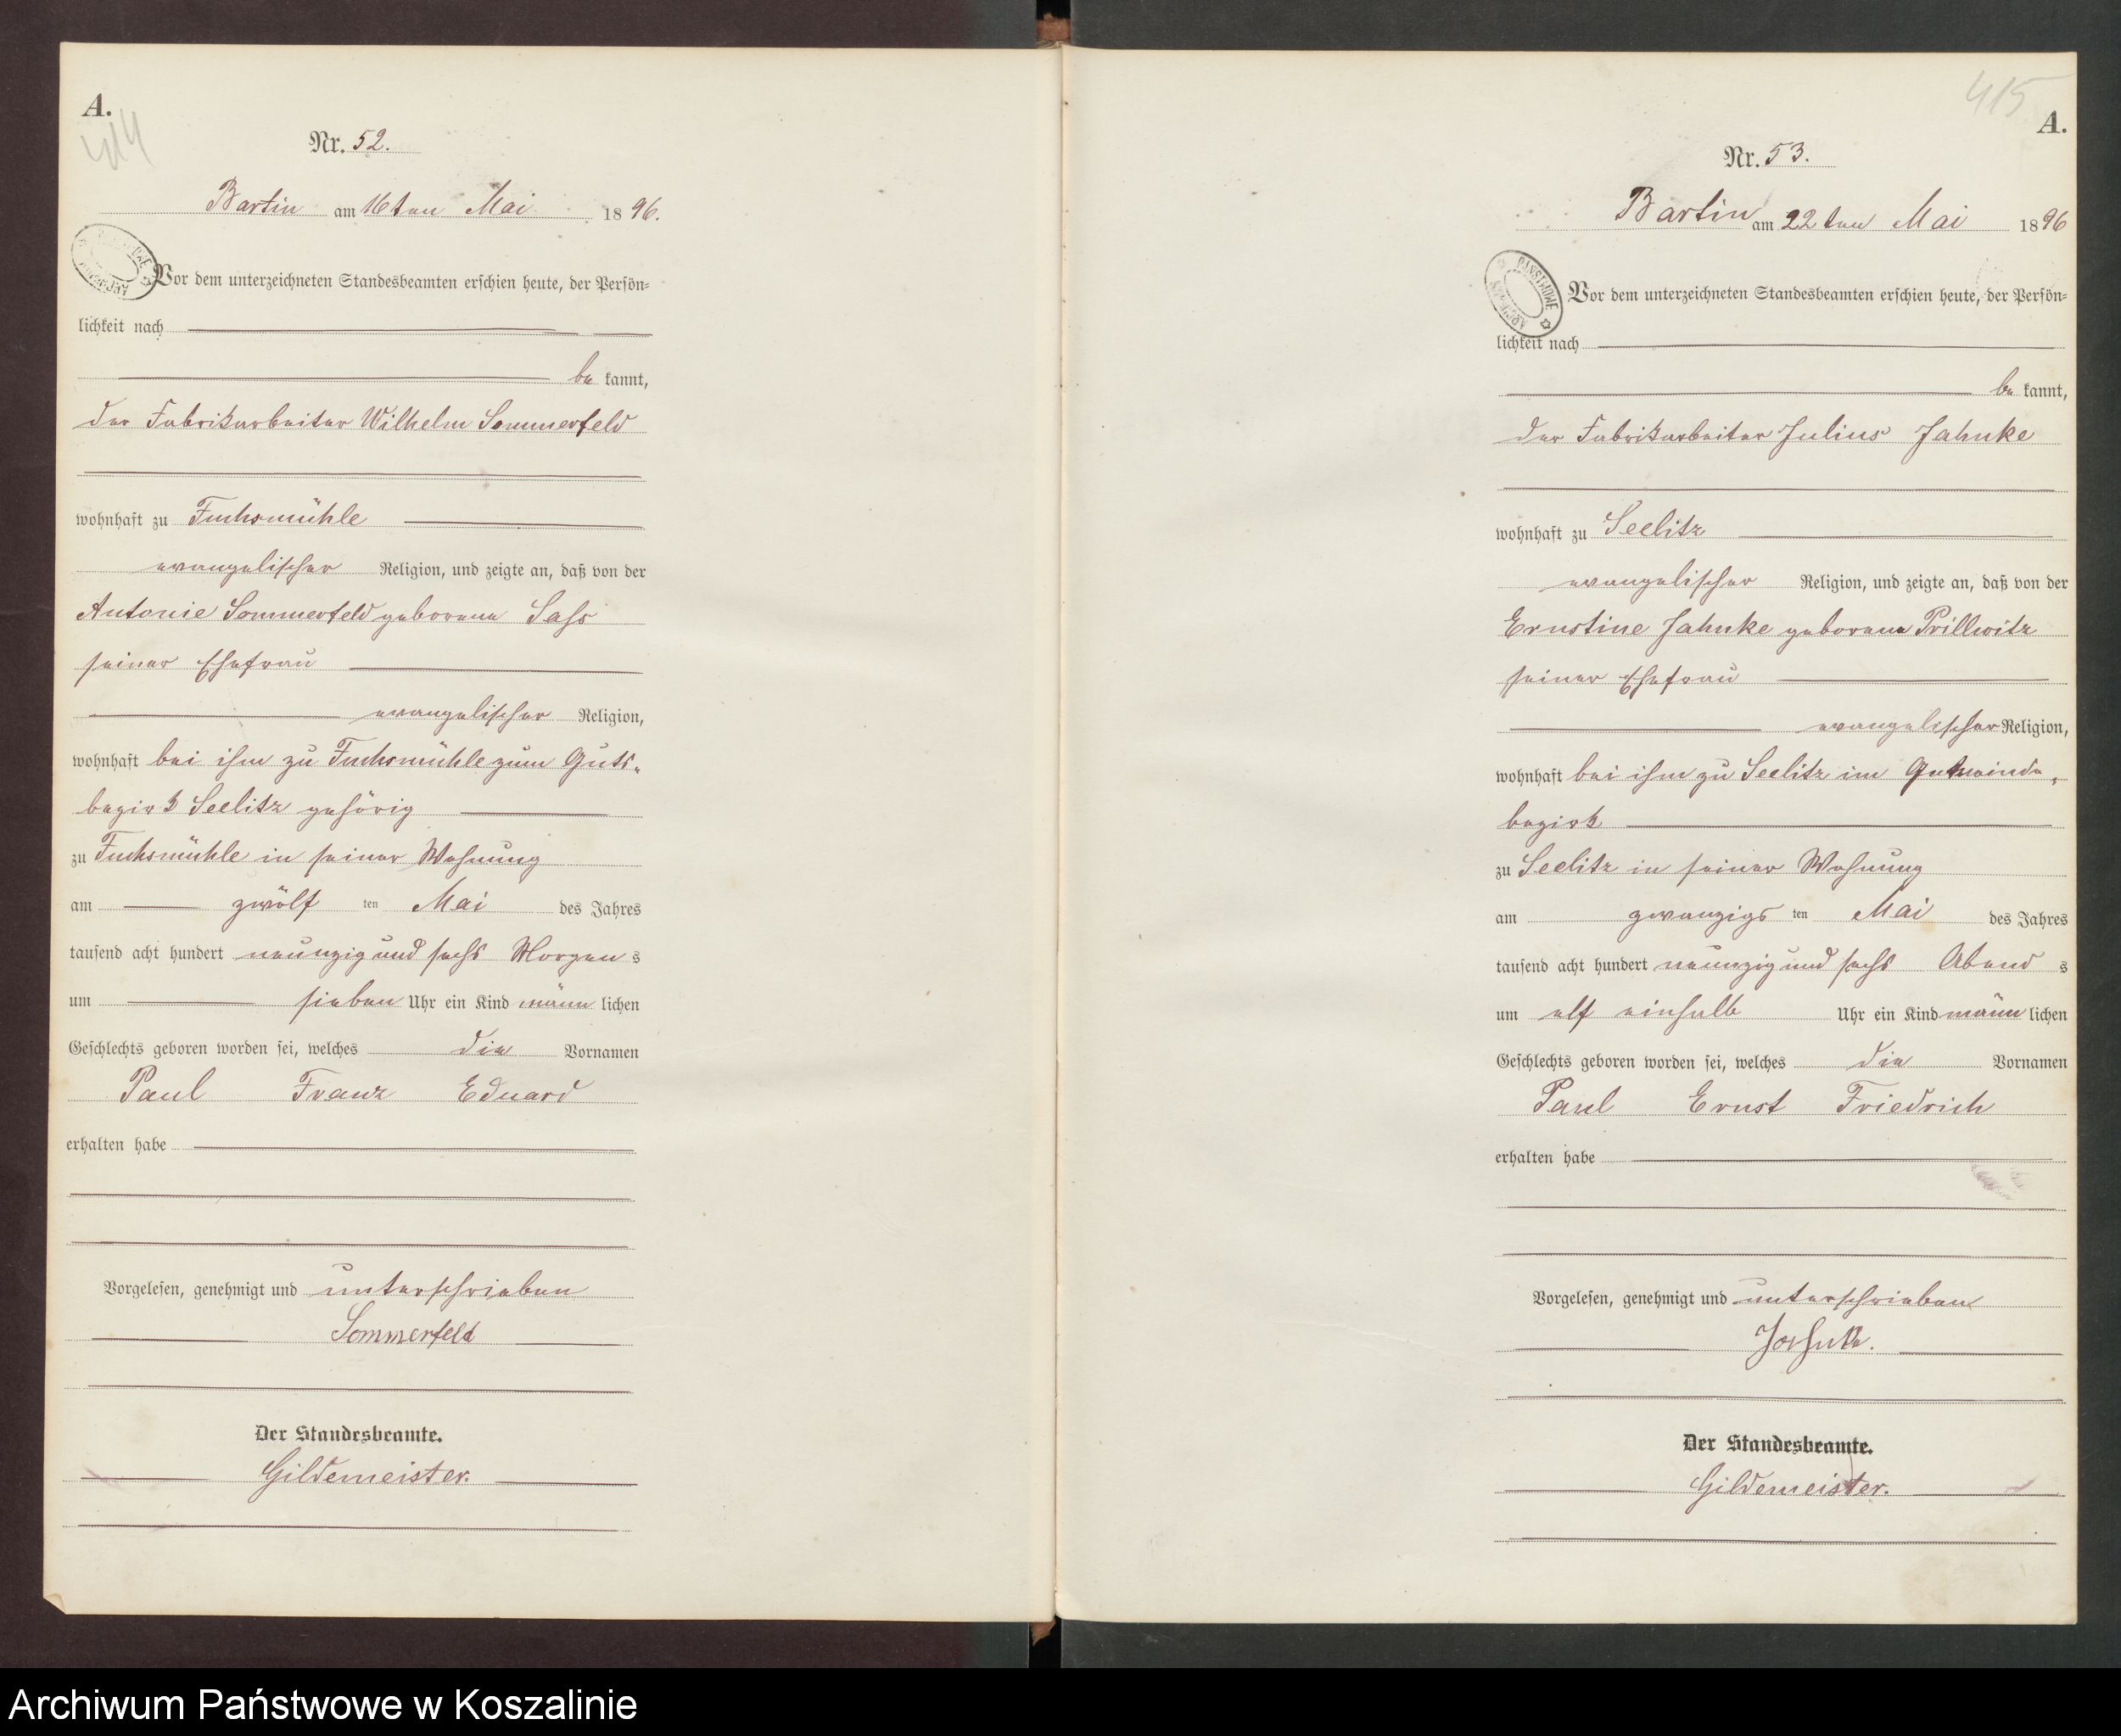 A.
414
Nr. 52.
Bartin am 16ten Mai 1896.
Vor dem unterzeichneten Standesbeamten erschien heute, der Persön=
lichkeit nach
be kannt,
der Fabrikarbeiter Wilhelm Sommerfeld
wohnhaft zu Fuchsmühle
evangelischer Religion, und zeigte an, daß von der
Antonie Sommerfeld geborene Sass
seiner Ehefrau
evangelischer Religion,
wohnhaft bei ihm zu Fuchsmühle zum Guts-
bezirk Seelitz gehörig
zu Fuchsmühle in seiner Wohnung
am zwölf ten Mai des Jahres
tausend acht hundert neunzig und sechs Morgen s
um sieben Uhr ein Kind männ lichen
Geschlechts geboren worden sei, welches die Vornamen
Paul Franz Eduard
erhalten habe
Vorgelesen, genehmigt und unterschrieben
Sommerfeld
Der Standesbeamte.
Gildemeister.
415
A.
Nr. 53.
Bartin am 22ten Mai 1896
PANSTWOWE ARCHIWUM
Vor dem unterzeichneten Standesbeamten erschien heute, der Persön=
lichkeit nach
be kannt,
der Fabrikarbeiter Julius Jahnke
wohnhaft zu Seelitz
evangelischer Religion, und zeigte an, daß von der
Ernstine Jahnke geborene Prillwitz
seiner Ehefrau
evangelischer Religion,
wohnhaft bei ihm zu Seelitz im
bezirk
zu Seelitz in seiner Wohnung
am zwanzigs ten Mai des Jahres
tausend acht hundert neunzig und sechs Abend s
um elf einhalb Uhr ein Kind männ lichen
Geschlechts geboren worden sei, welches die Vornamen
Paul Ernst Friedrich
erhalten habe
Vorgelesen, genehmigt und unterschrieben
Jahnke.
Der Standesbeamte.
Gildemeister.
Archiwum Państwowe w Koszalinie